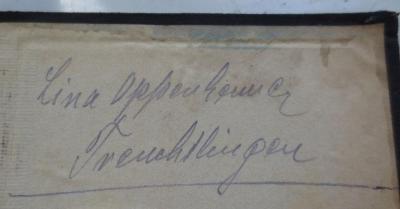 Lina Oppenheimer
Treuchtlingen